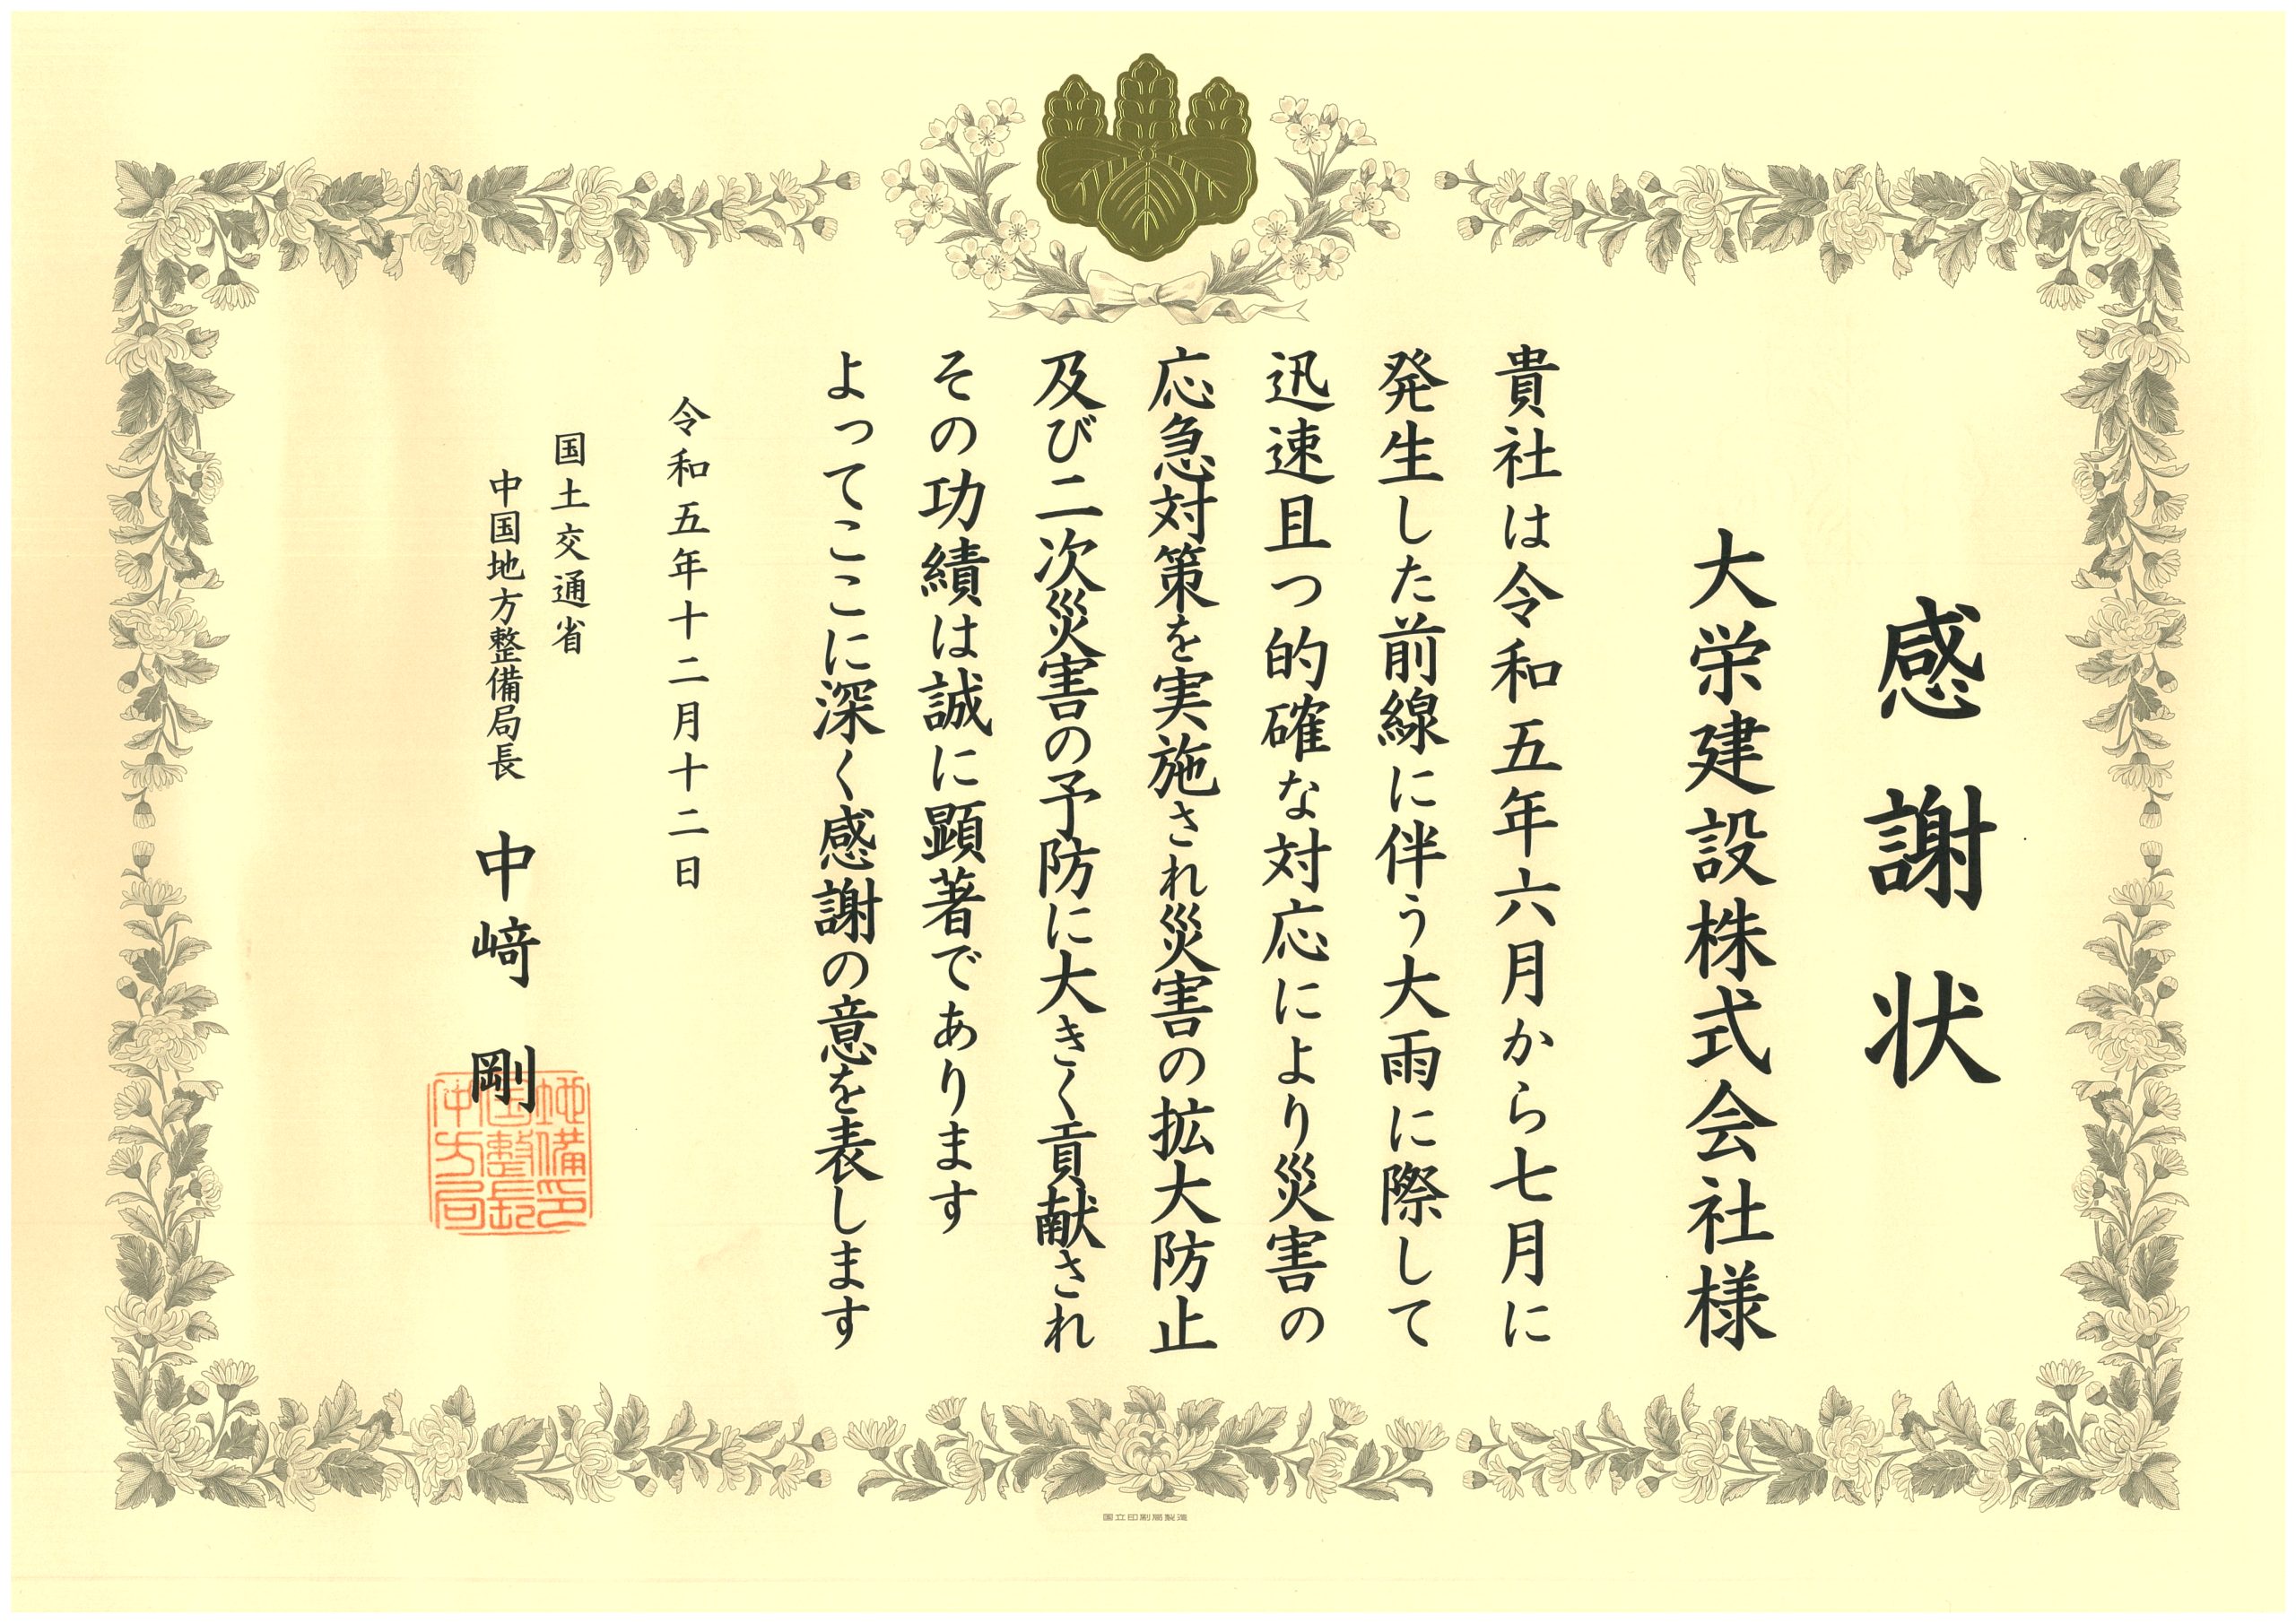 感謝状
大栄建設株式会社様
貴社は令和五年六月から七月に
発生した前線に伴う大雨に際して
迅速且つ的確な対応により災害の
応急対策を実施され災害の拡大防止
及び二次災害の予防に大きく貢献され
その功績は誠に顕著であります
よってここに深く感謝の意を表します
令和五年十二月十二日
国土交通省
中国地方整備局長 中﨑 剛
国立印刷局製造